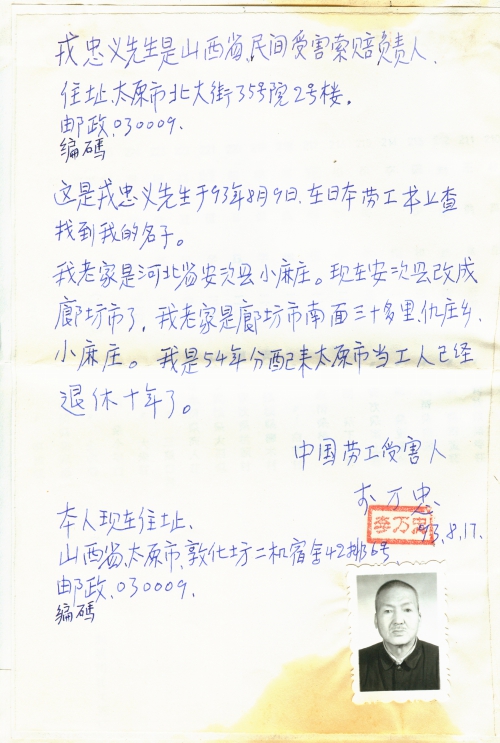 戎忠义先生是山西省、民间受害索赔负责人、
住址、太原市北大街35号院2号楼。
邮政、030009、
编码
这是戎忠义先生于93年8月9日、在日本劳工书上查
找到我的名子。
我老家是河北省安次县小麻庄。现在安次县改成
廊坊市了，我老家是廊坊市南面三十多里、仇庄乡、
小麻庄。我是54年分配来太原市当工人已经
退休十年了。
中国劳工受害人
李万忠、
李万忠
93.8.17.
本人现在住址、
山西省、太原市、敦化坊二机宿舍42排6号
邮政、030009、
编码